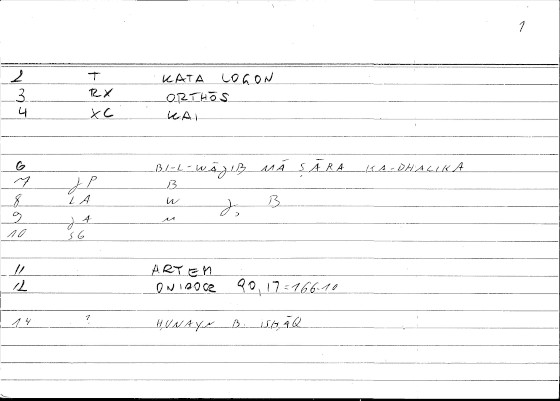 1
2 T KATA LOGON
3 RX ORTHŌS
4 XC KAI
6 BI-L-WĀJIB MĀ ṢĀRA KA-DHALIKA
7 JP B
8 LA W J, B
9 JA M
10 SG
11 ARTEM
12 90,17=166.10
14 ? HUNAYN B. ISḤĀQ